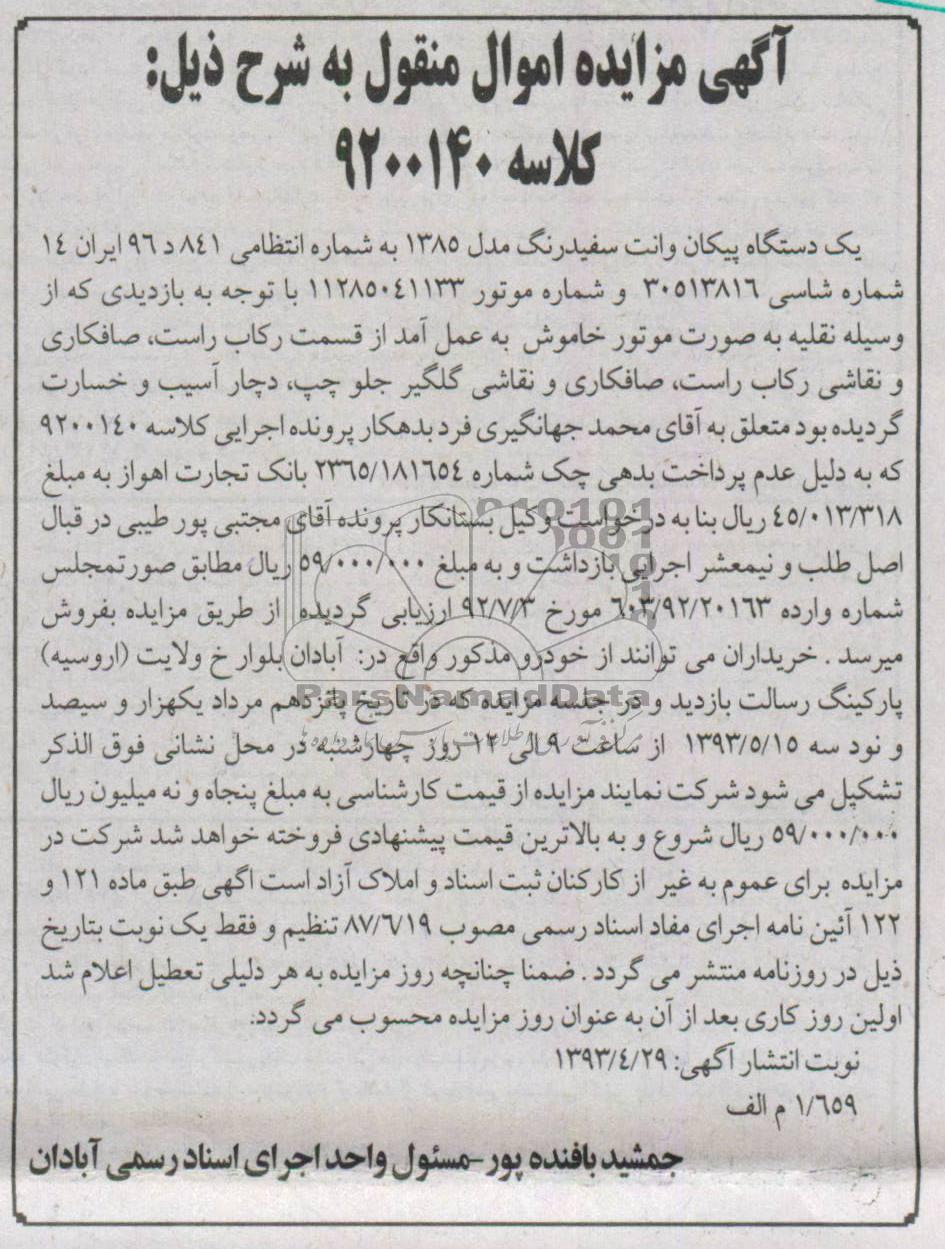 آگهی مزایده اموال منقول به شرح ذیل:
کلاسه ۹۲۰۰۱۴۰
یک دستگاه پیکان وانت سفیدرنگ مدل ۱۳۸۵ به شماره انتظامی ۸۴۱ د ۹۶ ایران ۱۴
شماره شاسی ۳۰۵۱۳۸۱۶ و شماره موتور ۱۱۲۸۵۰۴۱۱۳۳ با توجه به بازدیدی که از
وسیله نقلیه به صورت موتور خاموش به عمل آمد از قسمت رکاب راست، صافکاری
و نقاشی رکاب راست، صافکاری و نقاشی گلگیر جلو چپ، دچار آسیب و خسارت
گردیده بود متعلق به آقای محمد جهانگیری فرد بدهکار پرونده اجرایی کلاسه ۹۲۰۰۱۴۰
که به دلیل عدم پرداخت بدهی چک شماره ۲۳۶۵/۱۸۱۶۵۴ بانک تجارت اهواز به مبلغ
۴۵/۰۱۳/۳۱۸ ریال بنا به درخواست وکیل بستانکار پرونده آقای مجتبی پور طیبی در قبال
اصل طلب و نیمعشر اجرایی بازداشت و به مبلغ ۵۹/۰۰۰/۰۰۰ ریال مطابق صورتمجلس
شماره وارده ۶۰۳/۹۲/۲۰۱۶۳ مورخ ۹۲/۷/۳ ارزیابی گردیده از طریق مزایده بفروش
میرسد . خریداران می توانند از خودرو مذکور واقع در: آبادان بلوار خ ولایت (اروسیه)
پارکینگ رسالت بازدید و در جلسه مزایده که در تاریخ پانزدهم مرداد یکهزار و سیصد
و نود سه ۱۳۹۳/۵/۱۵ از ساعت ۹ الی ۱۲ روز چهارشنبه در محل نشانی فوق الذکر
تشکیل می شود شرکت نمایند مزایده از قیمت کارشناسی به مبلغ پنجاه و نه میلیون ریال
۵۹/۰۰۰/۰۰۰ ریال شروع و به بالاترین قیمت پیشنهادی فروخته خواهد شد شرکت در
مزایده برای عموم به غیر از کارکنان ثبت اسناد و املاک آزاد است اگهی طبق ماده ۱۲۱ و
۱۲۲ آئین نامه اجرای مفاد اسناد رسمی مصوب ۸۷/۶/۱۹ تنظیم و فقط یک نوبت بتاریخ
ذیل در روزنامه منتشر می گردد . ضمنا چنانچه روز مزایده به هر دلیلی تعطیل اعلام شد
اولین روز کاری بعد از آن به عنوان روز مزایده محسوب می گردد.
نوبت انتشار آگهی: ۱۳۹۳/۴/۲۹
۱/۶۵۹ م الف
جمشید بافنده پور-مسئول واحد اجرای اسناد رسمی آبادان
ParsNamadData